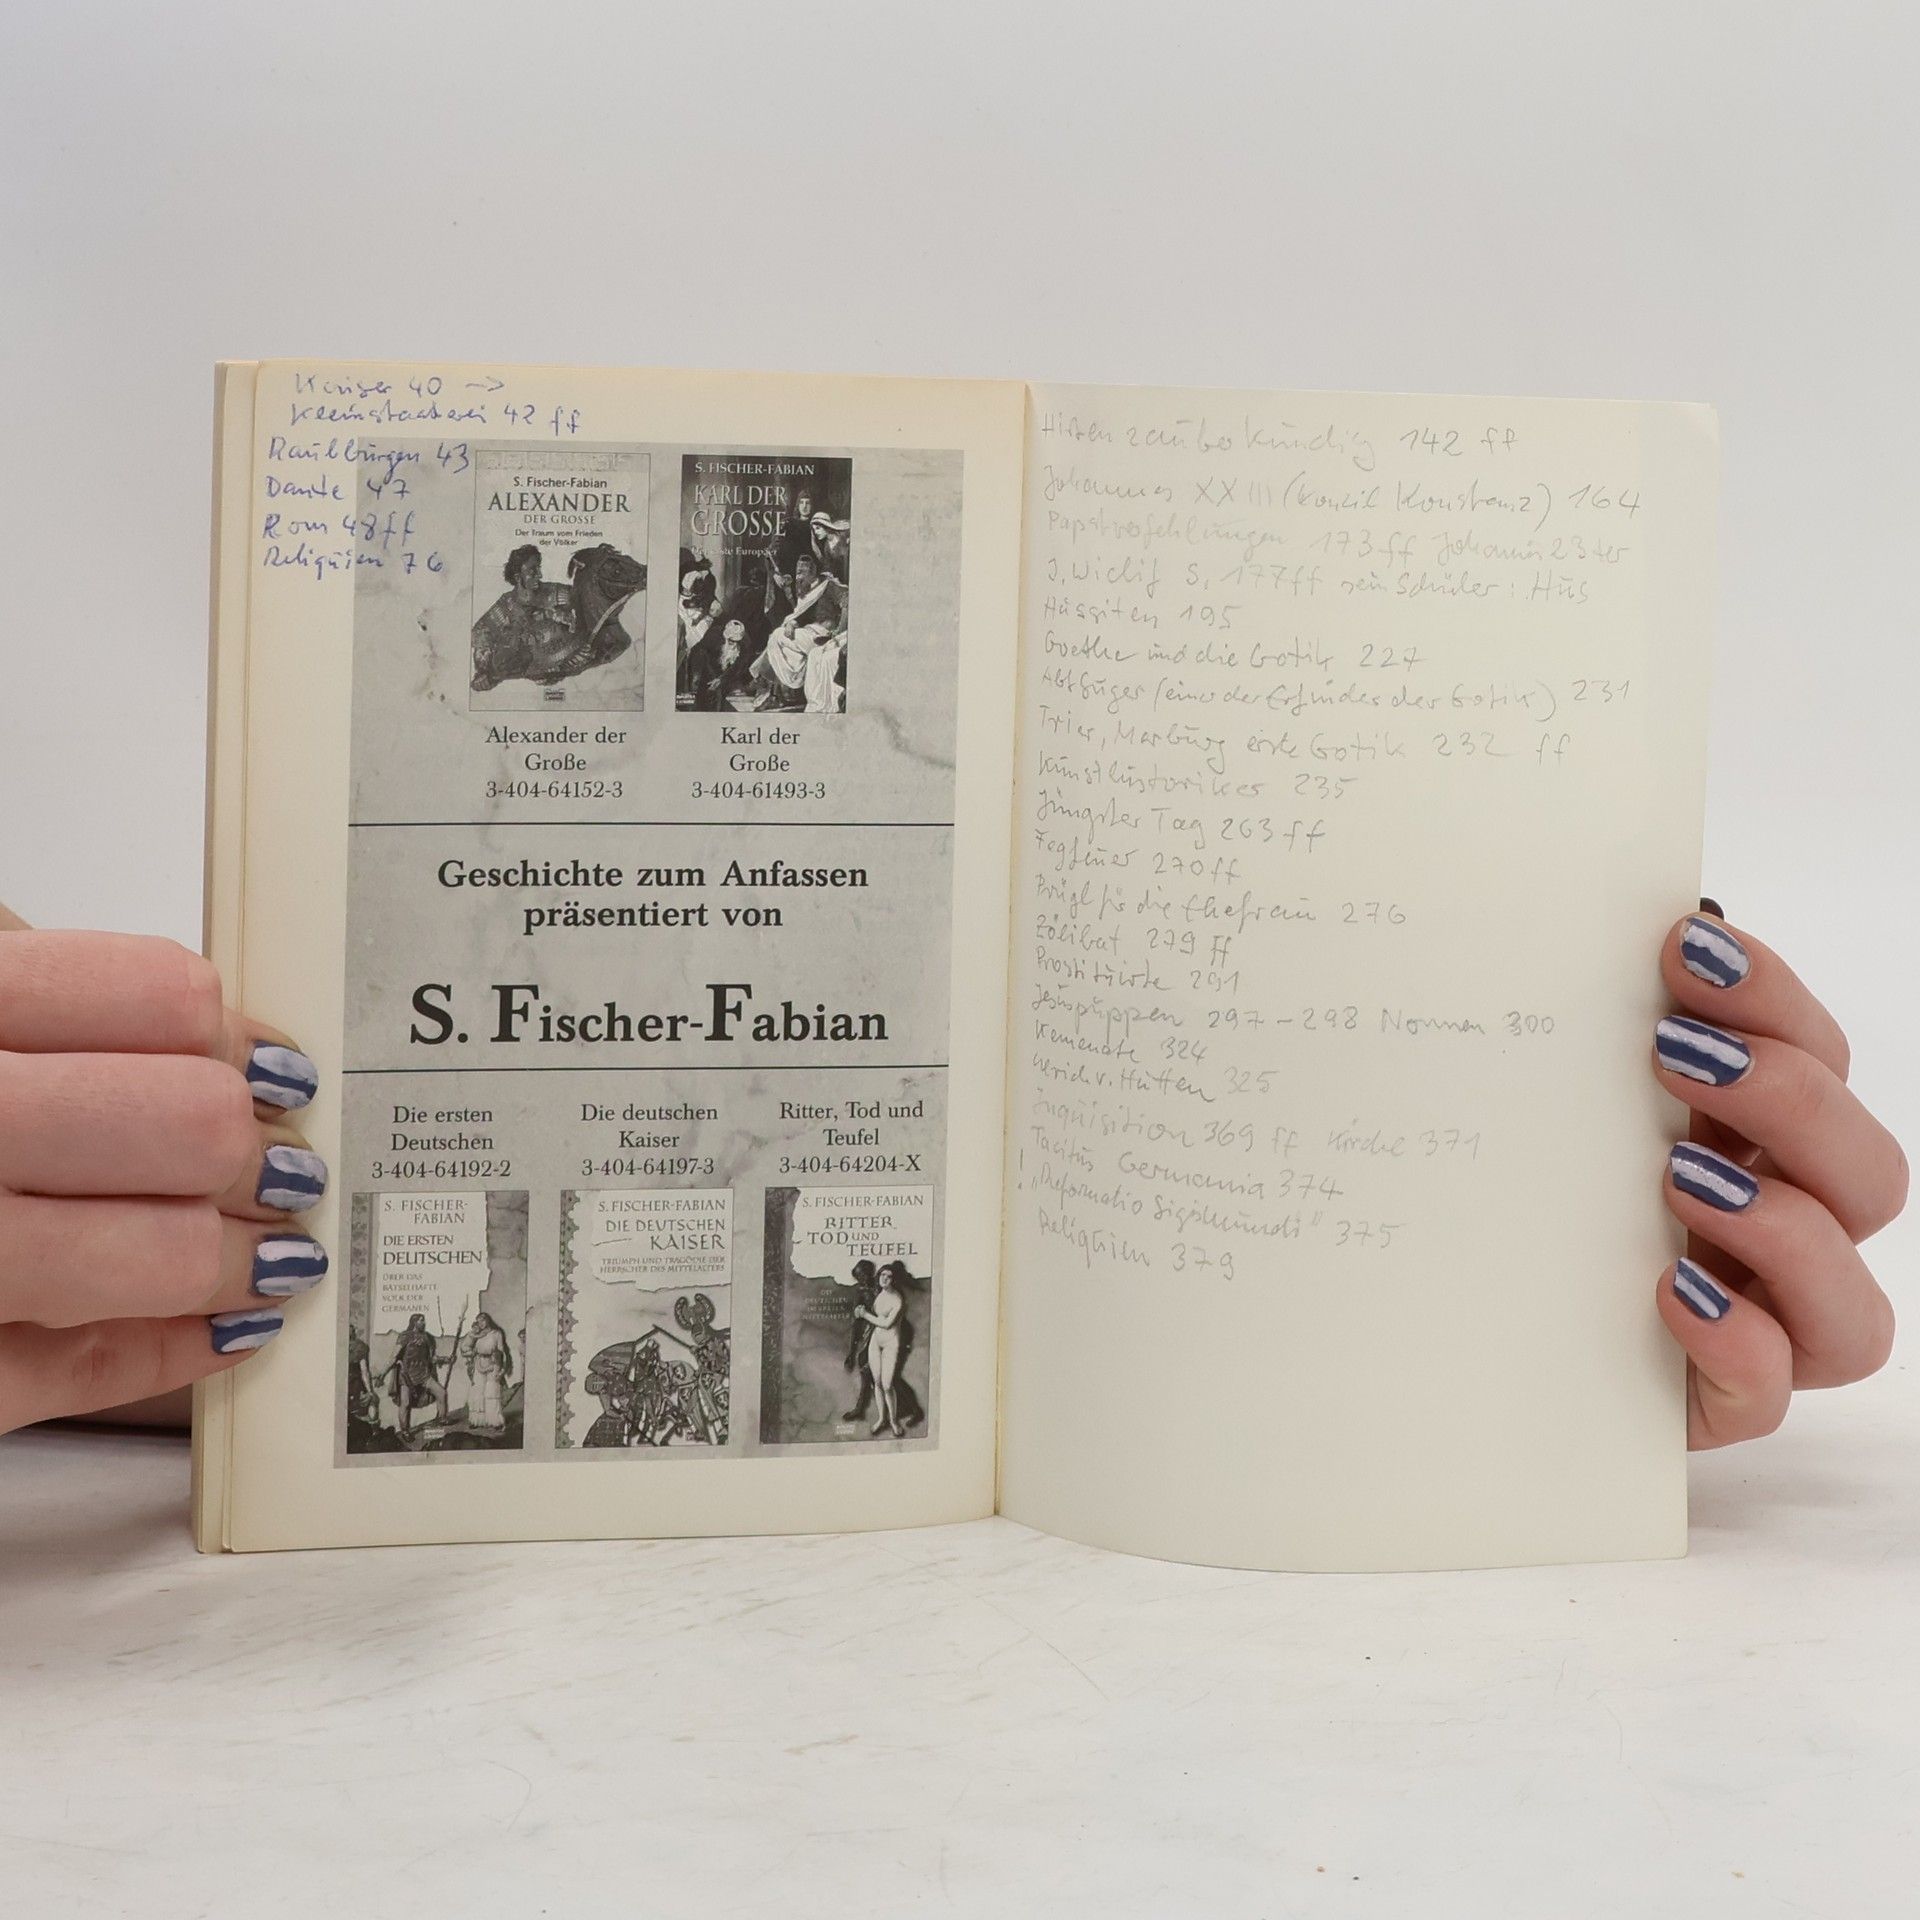 Kaiser 40 →
Kleinstaaterei 42 ff
Raubburgen 43
Dante 47
Rom 48 ff
Reliquien 76
S. Fischer-Fabian
ALEXANDER
DER GROSSE
Der Traum vom Frieden
der Völker
S. FISCHER-FABIAN
KARL DER
GROSSE
Der erste Europäer
Alexander der
Große
3-404-64152-3
Karl der
Große
3-404-61493-3
Geschichte zum Anfassen
präsentiert von
S. Fischer-Fabian
Die ersten
Deutschen
3-404-64192-2
Die deutschen
Kaiser
3-404-64197-3
Ritter, Tod und
Teufel
3-404-64204-X
S. FISCHER-
FABIAN
DIE ERSTEN
DEUTSCHEN
ÜBER DAS
RÄTSELHAFTE
VOLK DER
GERMANEN
S. FISCHER-FABIAN
DIE DEUTSCHEN
KAISER
TRIUMPH UND TRAGÖDIE DER
HERRSCHER DES MITTELALTERS
S. FISCHER-FABIAN
RITTER
TOD UND
TEUFEL
DIE
DEUTSCHEN
IM SPÄTEN
MITTELALTER
Hirten zauberkundig 142 ff
Johannes XXIII (Konzil Konstanz) 164
Papstverfehlungen 173 ff Johannes 23ter
J. Wiclif S. 177 ff sein Schüler: Hus
Hussiten 195
Goethe und die Gotik 227
Abt Suger (einer der Erfinder der Gotik) 231
Trier, Marburg erste Gotik 232 ff
Kunsthistoriker 235
Jüngster Tag 263 ff
Fegfeuer 270 ff
Prügl für die Ehefrau 276
Zölibat 279 ff
Prostituirte 291
Jesuspuppen 297-298 Nonnen 300
Kemenate 324
Ulrich v. Hutten 325
Inquisition 369 ff Kirche 371
Tacitus Germania 374
! "Reformatio Sigismundi" 375
Reliquien 379